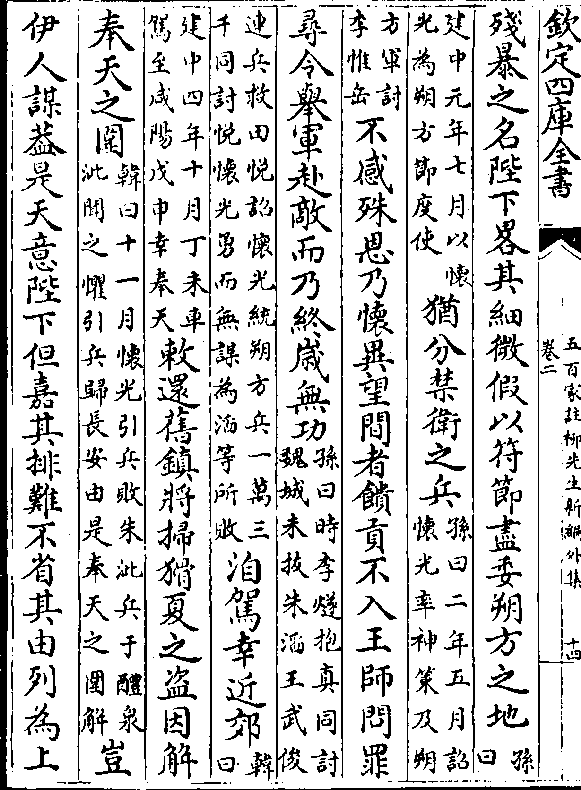 欽定四庫全書
五百家註柳先生新編外集
卷二
十四
殘暴之名陛下畧其細微假以符節盡委朔方之地孫曰
建中元年七月以懷
光為朔方節度使
猶分禁衛之兵
孫曰二年五月詔
懷光率神策及朔
方軍討
李惟岳
不感殊恩乃懷異望間者饋貢不入王師問罪
尋令舉軍赴敵而乃終歲無功
孫曰時李燧抱真同討
魏城未拔朱滔王武俊
連兵救田悅詔懷光統朔方兵一萬三
千同討悅懷光勇而無謀為滔等所敗
洎駕幸近郊
韓曰
建中四年十月丁未車
駕至咸陽戊申幸奉天
敕還舊鎮將掃猾夏之盜因解
奉天之圍
韓曰十一月懷光引兵敗朱泚兵于醴泉
泚聞之懼引兵歸長安由是奉天之圍解
豈
伊人謀葢是天意陛下但嘉其排難不省其由列為上